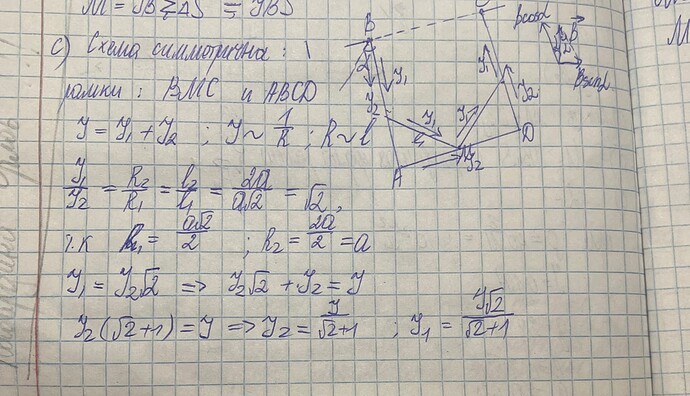 M = JBΣΔS = JBS
c) Схема симметрична:
рамки: BMC и ABCD
J = J₁ + J₂ ; J ~ 1/R ; R ~ l
J₁/J₂ = R₂/R₁ = l₂/l₁ = 2a/a√2 = √2,
т.к R₁ = a√2/2 ; R₂ = 2a/2 = a
J₁ = J₂√2 => J₂√2 + J₂ = J
J₂(√2+1) = J => J₂ = J/√2+1 ; J₁ = J√2/√2+1
B
J₁
J₂
J₁
J₁
J₁
J₂
A
J₂
D
Bcosα
B
Bsinα
M